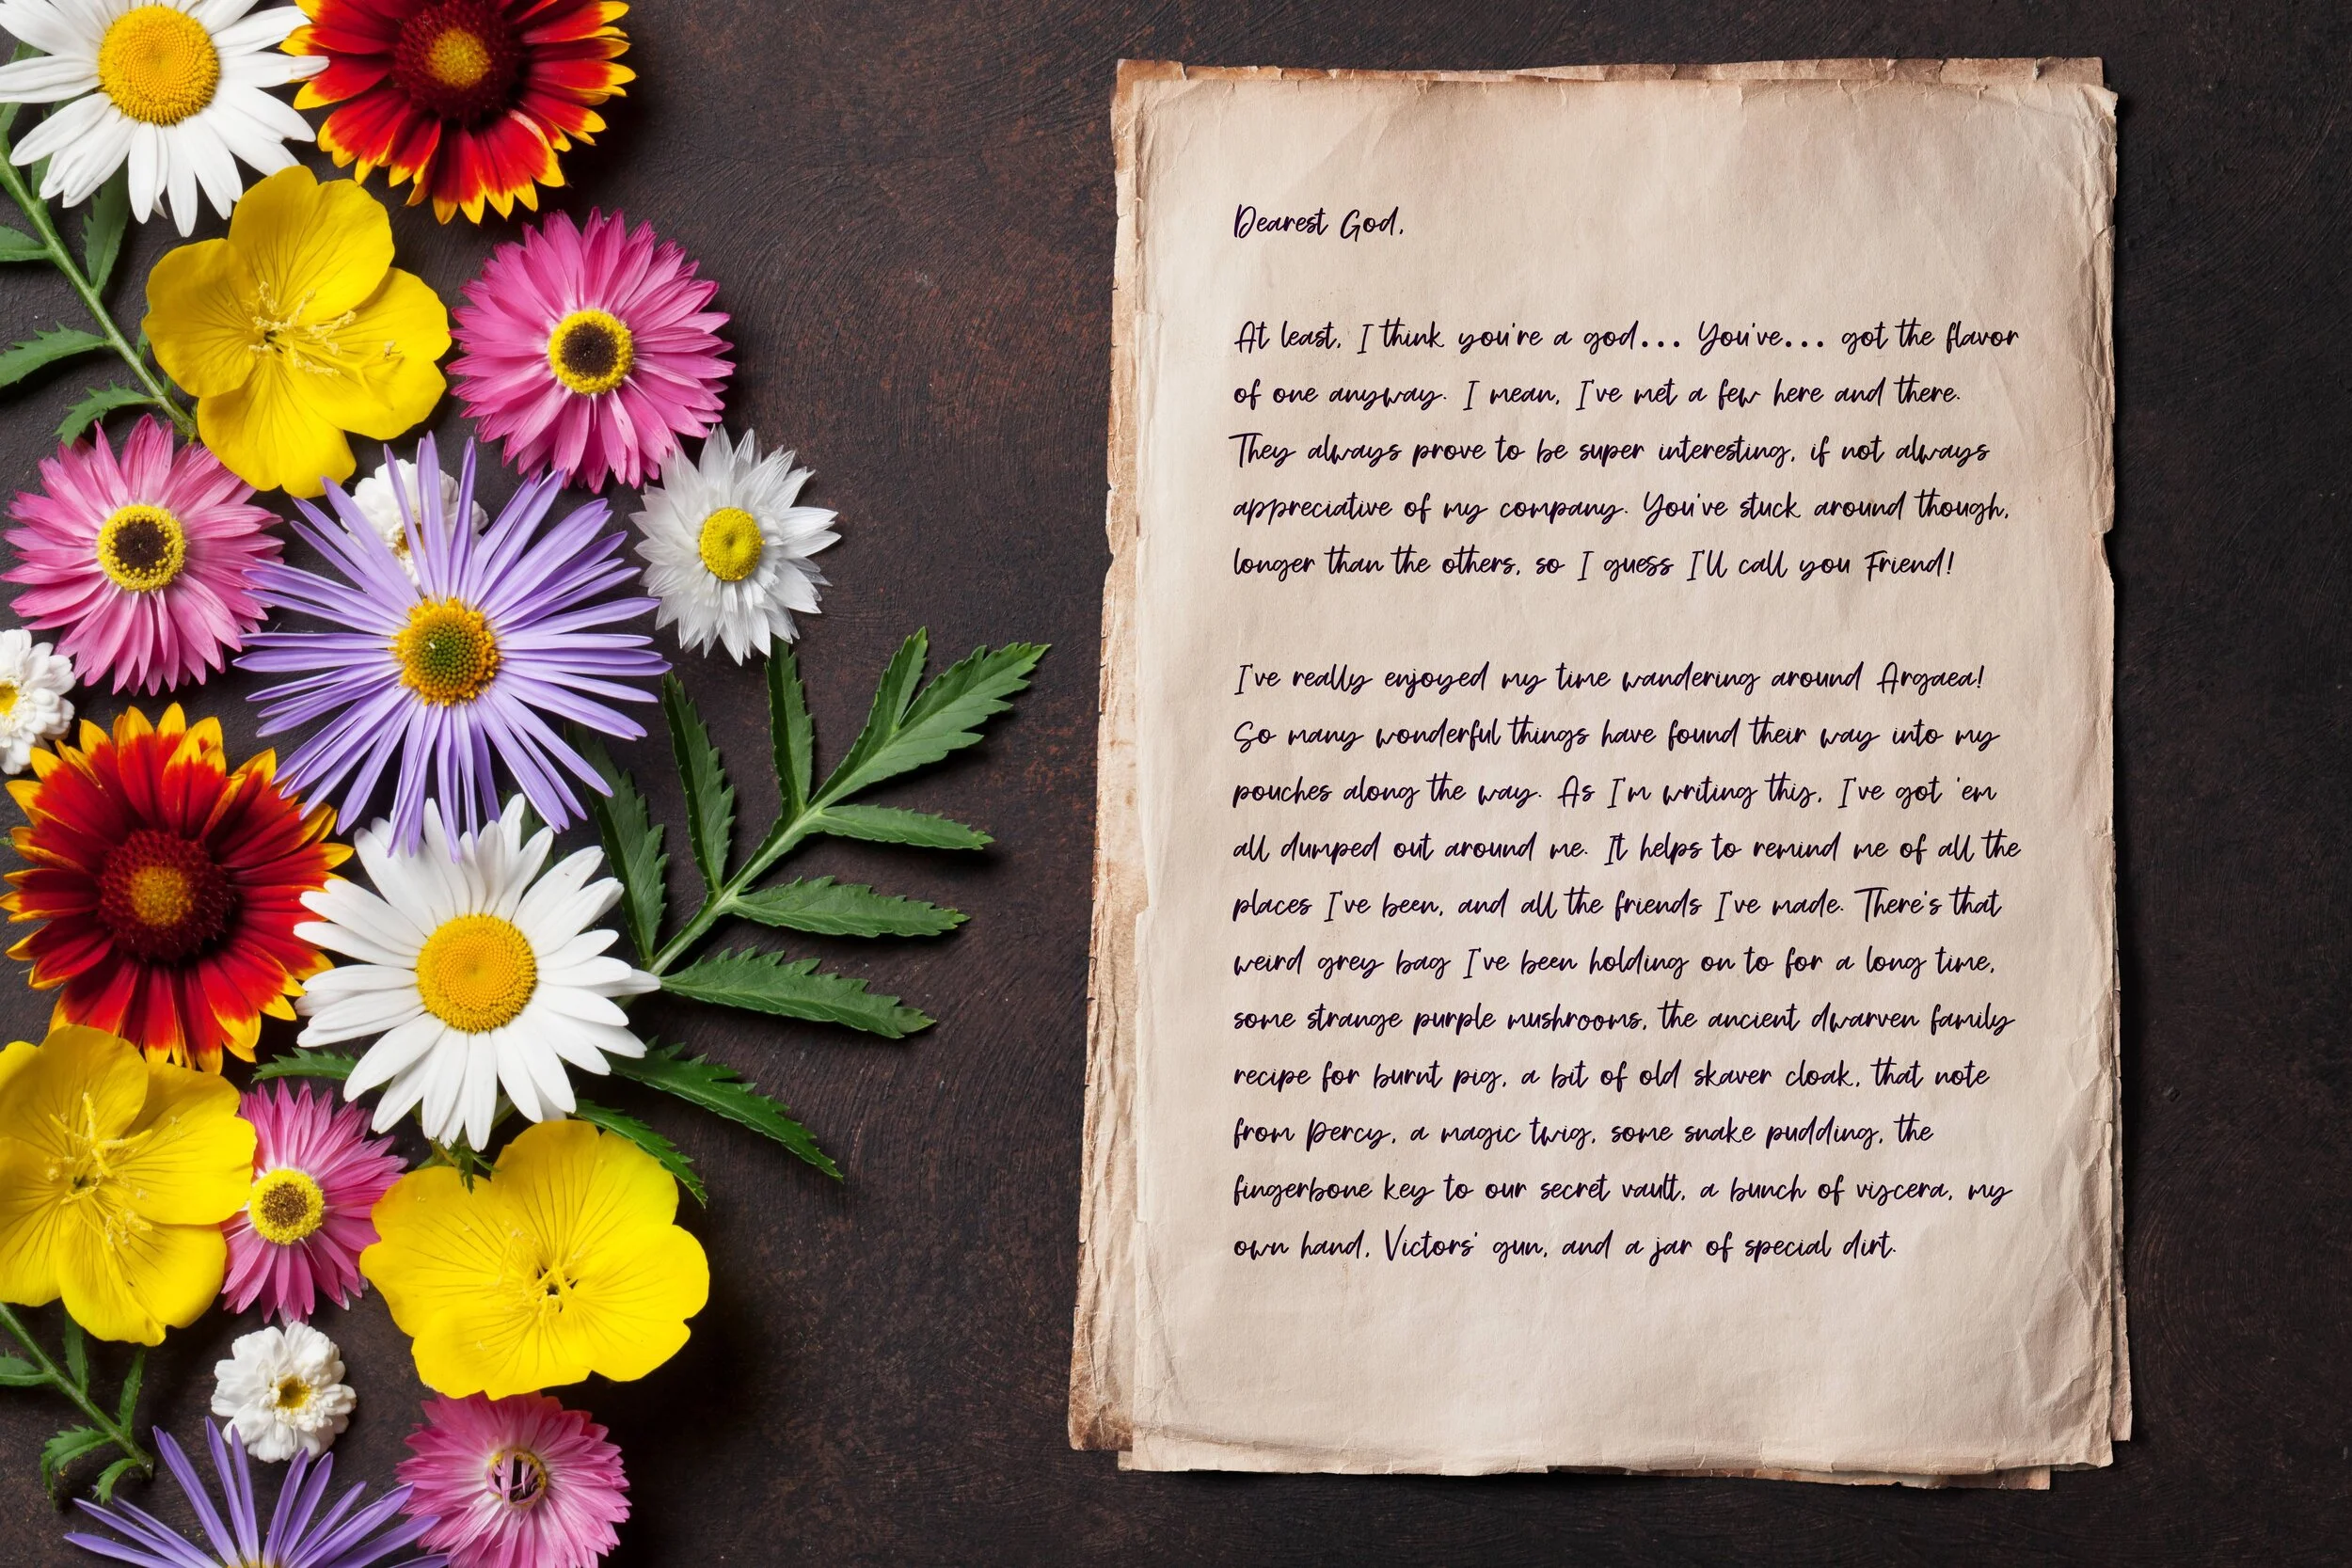 Dearest God,
At least, I think you're a god... You've... got the flavor
of one anyway. I mean, I've met a few here and there.
They always prove to be super interesting, if not always
appreciative of my company. You've stuck around though,
longer than the others, so I guess I'll call you Friend!
I've really enjoyed my time wandering around Argaea!
So many wonderful things have found their way into my
pouches along the way. As I'm writing this, I've got 'em
all dumped out around me. It helps to remind me of all the
places I've been, and all the friends I've made. There's that
weird grey bag I've been holding on to for a long time,
some strange purple mushrooms, the ancient dwarven family
recipe for burnt pig, a bit of old skaver cloak, that note
from Percy, a magic twig, some snake pudding, the
fingerbone key to our secret vault, a bunch of viscera, my
own hand, Victors' gun, and a jar of special dirt.